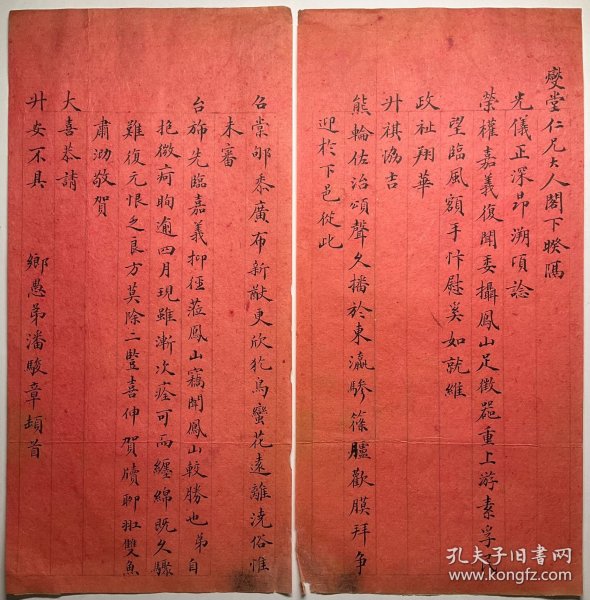 燮堂仁兄大人閣下暌隔
光儀正深昂溯頃諗
榮權嘉義復聞委攝鳳山足徵器重上游素孚
望臨風額手忭慰奚如就維
政祉翔華
升祺協吉
熊輪佐治頌聲久播於東瀛驂篠臚歡膜拜争
迎於下邑從此
召棠郇黍廣布新猷更欣犵鳥蠻花遠離澆俗惟
未審
台旆先臨嘉義抑徑蒞鳳山竊聞鳳山較勝也弟自
抱微疴晌逾四月現雖漸次痊可而纏綿既久驟
難復元恨乏良方莫除二豎喜伸賀牘聊拟雙魚
肅泐敬賀
大喜恭請
升安不具
鄉愚弟潘駿章頓首
孔夫子旧书网
www.kongfz.com